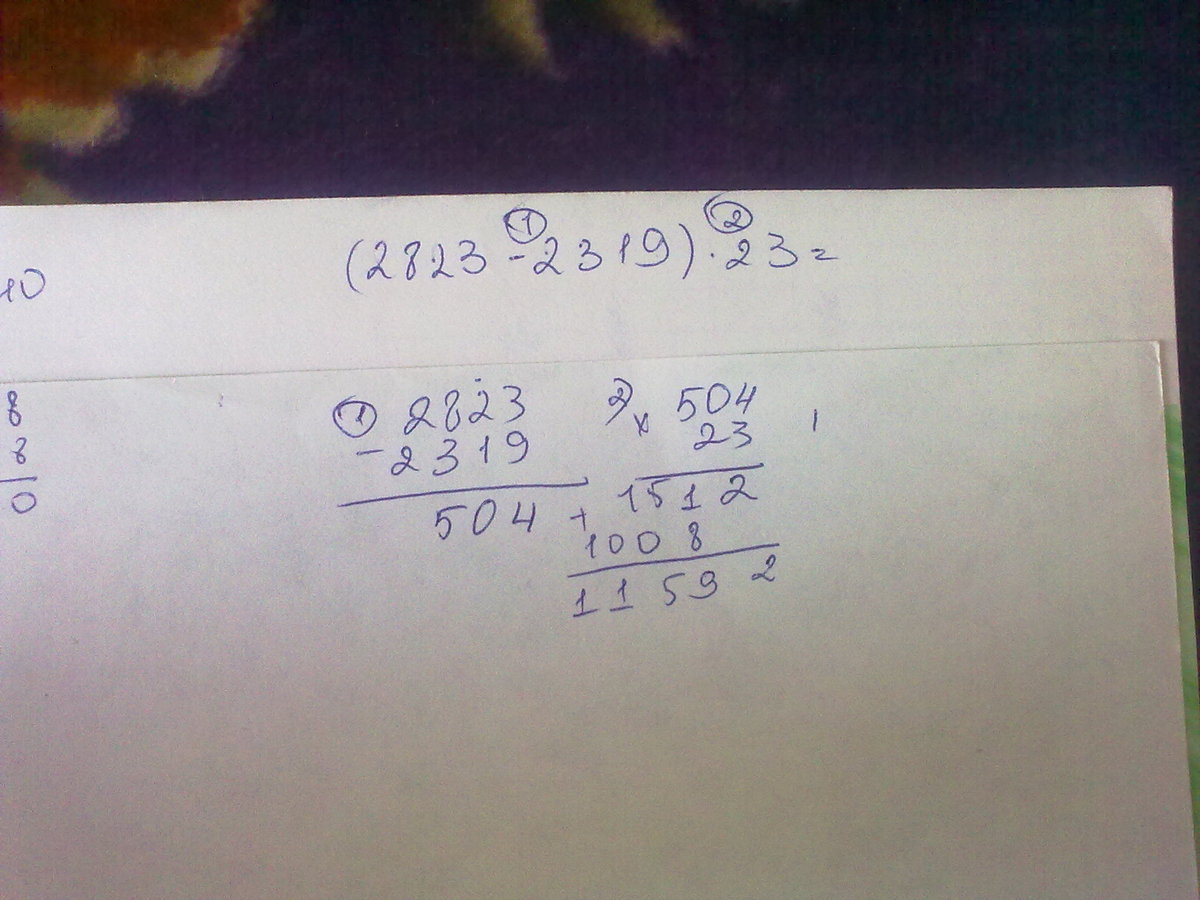 ① ②
(2823 - 2319) · 23 =
10
8
8
0
① 2823
- 2319
504
2) x 504
23
1512
+ 1008
11592